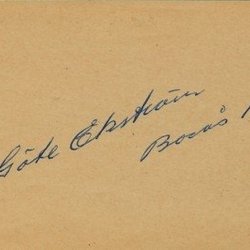 Göte Ekström
Borås